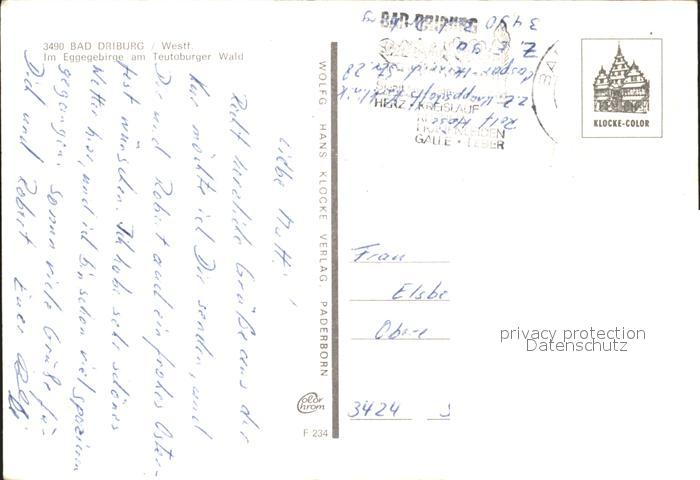 3490 BAD DRIBURG / Westf.
Im Eggegebirge am Teutoburger Wald
Liebe Mutti!
Recht herzliche Grüße aus der
Kur möchte ich Dir senden, und
Dir und Robert auch ein frohes Oster-
fest wünschen. Ich habe sehr schönes
Wetter hier, und ich bin schon viel spazieren
gegangen. Sonnn viele Grüße für
Dich und Robert Euer Rolf
WOLFG. HANS KLOCKE VERLAG, PADERBORN
color
chrom
F 234
Rolf Hose
z.Z. Knappschafts Klinik
Caspar-Heinrich-Str 28
3490 Bad Driburg
BAD DRIBURG
HERZ KREISLAUF
FRAUENLEIDEN
GALLE • LEBER
KLOCKE-COLOR
Frau
Elsbe
Obere
3424
privacy protection
Datenschutz